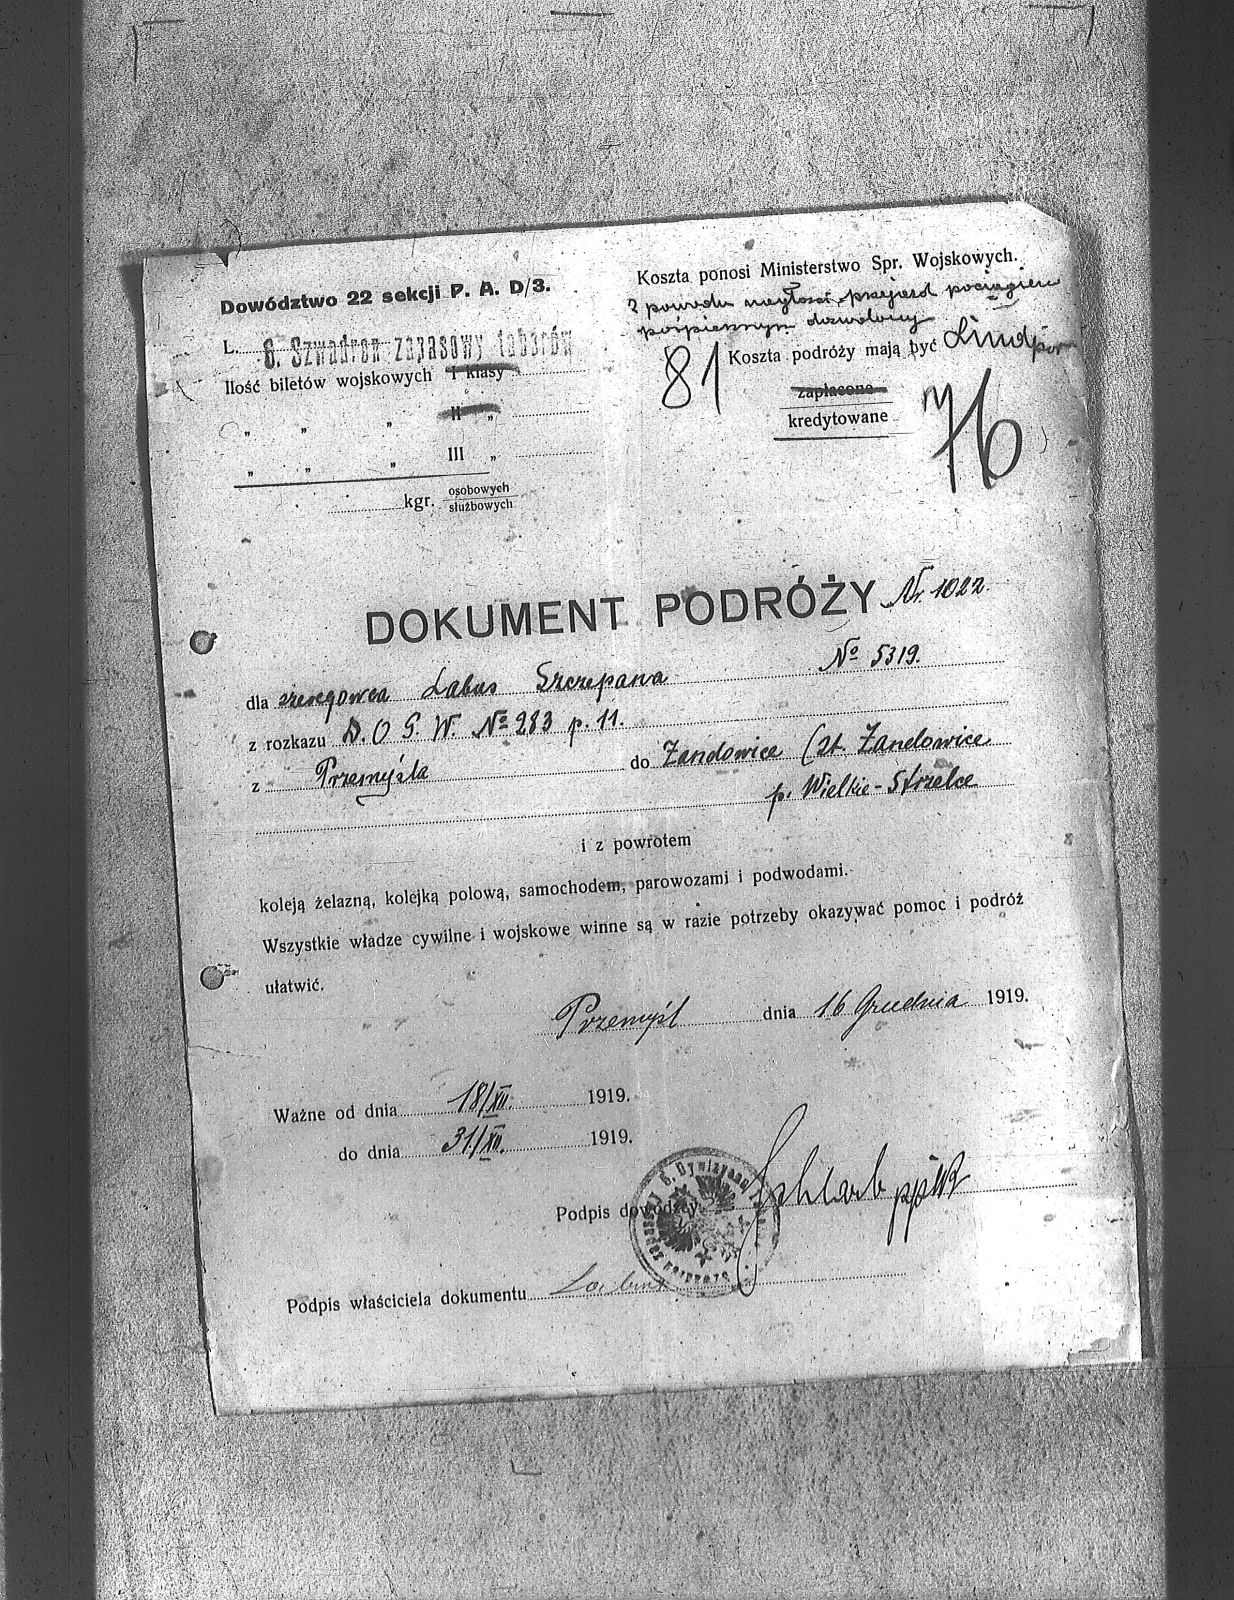 Dowództwo 22 sekcji P. A. D/3.
L. 6. Szwadron zapasowy taborów
Ilość biletów wojskowych I klasy
„ „ „ II „
„ „ „ III „
kgr. osobowych
służbowych
Koszta ponosi Ministerstwo Spr. Wojskowych.
Z powodu nagłości przejazd pociągiem
pośpiesznym dozwolony
Koszta podróży mają być
81
zapłacone
kredytowane
76
DOKUMENT PODRÓŻY Nr. 1022.
No 5319.
dla szeregowca Labus Szczepana
z rozkazu D. O G. W. No 283 p. 11.
z Przemyśla do Żandowice (st. Żandowice
p. Wielkie-Strzelce
i z powrotem
koleją żelazną, kolejką polową, samochodem, parowozami i podwodami.
Wszystkie władze cywilne i wojskowe winne są w razie potrzeby okazywać pomoc i podróż
ułatwić.
Przemyśl dnia 16 Grudnia 1919.
Ważne od dnia 18/XII. 1919.
do dnia 31/XII. 1919.
Podpis dowódzcy
Podpis właściciela dokumentu Labus